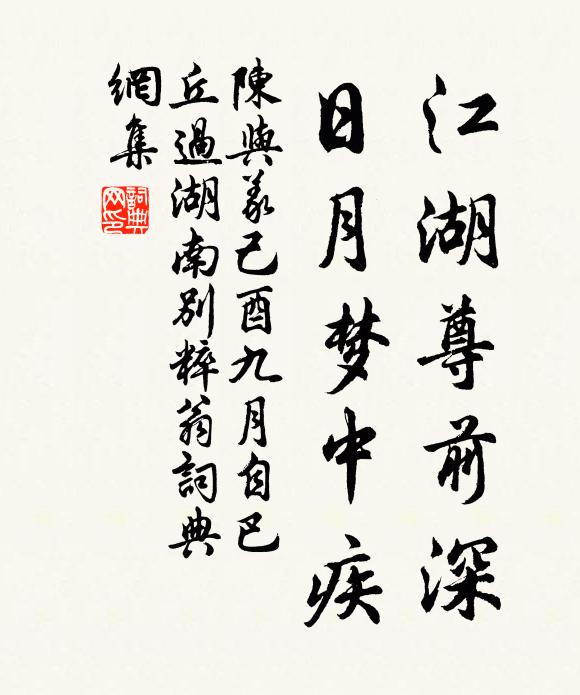 江湖尊前深
日月梦中疾
陳與義己酉九月自巴
丘過湖南別粹翁詞典
網集
詞典網印